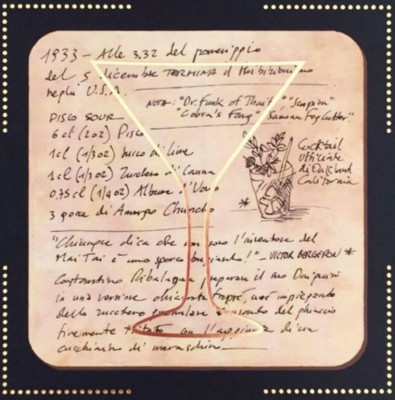 1933 - Alle 3.32 del pomeriggio
del 5 dicembre TERMINA il Proibizionismo
negli U.S.A.
NOTA: "Dr. Funk of Thaiti", "Scorpion"
"Cobra's Fang" "Samoan Fog Cutter"
PISCO SOUR
6 cl (2oz) Pisco
1cl (1/3oz) Succo di Lime
1cl (1/3oz) Zucchero di Canna
0,75cl (1/4oz) Albume d'Uovo
3 gocce di Amargo Chuncho
Cocktail
ufficiale
di Oakland
California
"Chiunque dica che non sono l'inventore del
Mai Tai è uno sporco bugiardo!" - VICTOR BERGERON *
Costantino Ribalagua, prepara il suo Daiquiri
in una versione chiamata Frappé, cioè impiegando
dello zucchero granulare e montando del ghiaccio
finemente tritato con l'aggiunta di un
cucchiaino di maraschino.